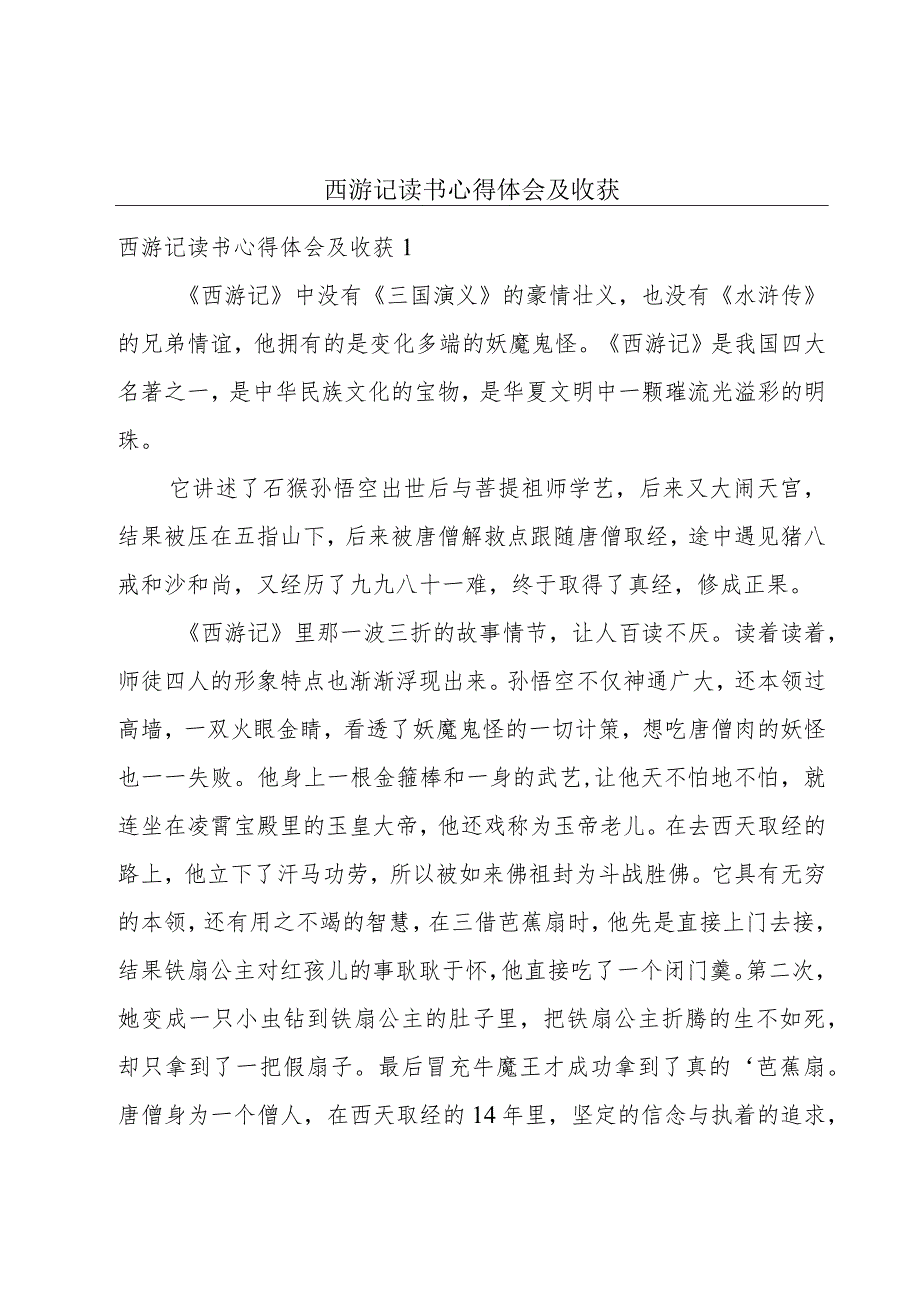 西游记读书心得体会及收获
西游记读书心得体会及收获1
《西游记》中没有《三国演义》的豪情壮义，也没有《水浒传》
的兄弟情谊，他拥有的是变化多端的妖魔鬼怪。《西游记》是我国四大
名著之一，是中华民族文化的宝物，是华夏文明中一颗璀流光溢彩的明
珠。
它讲述了石猴孙悟空出世后与菩提祖师学艺，后来又大闹天宫，
结果被压在五指山下，后来被唐僧解救点跟随唐僧取经，途中遇见猪八
戒和沙和尚，又经历了九九八十一难，终于取得了真经，修成正果。
《西游记》里那一波三折的故事情节，让人百读不厌。读着读着，
师徒四人的形象特点也渐渐浮现出来。孙悟空不仅神通广大，还本领过
高墙，一双火眼金睛，看透了妖魔鬼怪的一切计策，想吃唐僧肉的妖怪
也一一失败。他身上一根金箍棒和一身的武艺,让他天不怕地不怕，就
连坐在凌霄宝殿里的玉皇大帝，他还戏称为玉帝老儿。在去西天取经的
路上，他立下了汗马功劳，所以被如来佛祖封为斗战胜佛。它具有无穷
的本领，还有用之不竭的智慧，在三借芭蕉扇时，他先是直接上门去接，
结果铁扇公主对红孩儿的事耿耿于怀，他直接吃了一个闭门羹。第二次，
她变成一只小虫钻到铁扇公主的肚子里，把铁扇公主折腾的生不如死，
却只拿到了一把假扇子。最后冒充牛魔王才成功拿到了真的‘芭蕉扇。
唐僧身为一个僧人，在西天取经的14年里，坚定的信念与执着的追求，